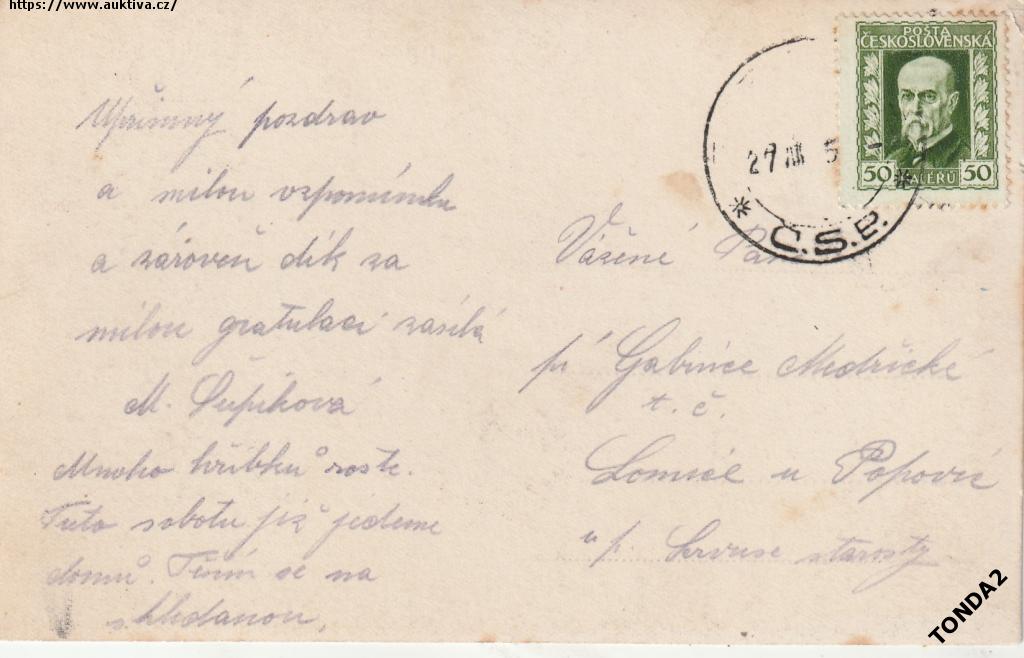 https://www.auktiva.cz/
POŠTA
ČESKOSLOVENSKÁ
50 HALÉŘŮ 50
27 VIII
Č.S.P.
Upřímný pozdrav
a milou vzpomínku
a zároveň dík za
milou gratulaci zasílá
M. Šupíková
Mnoho hříbků roste.
Tuto sobotu již jedeme
domů. Těším se na
shledanou,
Vážené Paní
pí Gabrice Medřické
t. č.
Lomice u Popovic
u p. starosty
TONDA2